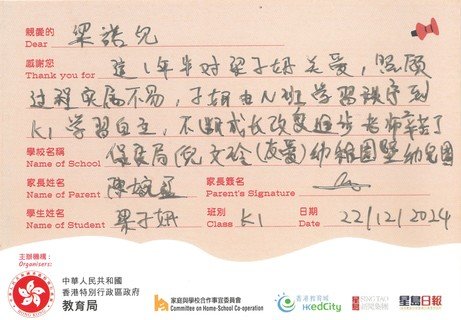 親愛的
Dear 梁諾兒
感謝您
Thank you for 這1年半对梁子妍关爱，照顾
过程实属不易，子妍由N班学習秩序到
K1 学習自主，不断成长改变進步老师辛苦了
學校名稱
Name of School 保良局倪文玲(友愛)幼稚園暨幼兒園
家長姓名
Name of Parent 陳婉 家長簽名
Parent's Signature
學生姓名
Name of Student 梁子妍 班別
Class K1 日期
Date 22/12/2024
主辦機構：
Organisers:
中華人民共和國
香港特別行政區政府
教育局
家庭與學校合作事宜委員會
Committee on Home-School Co-operation
香港教育城
HKedCity
SING TAO
星島日報